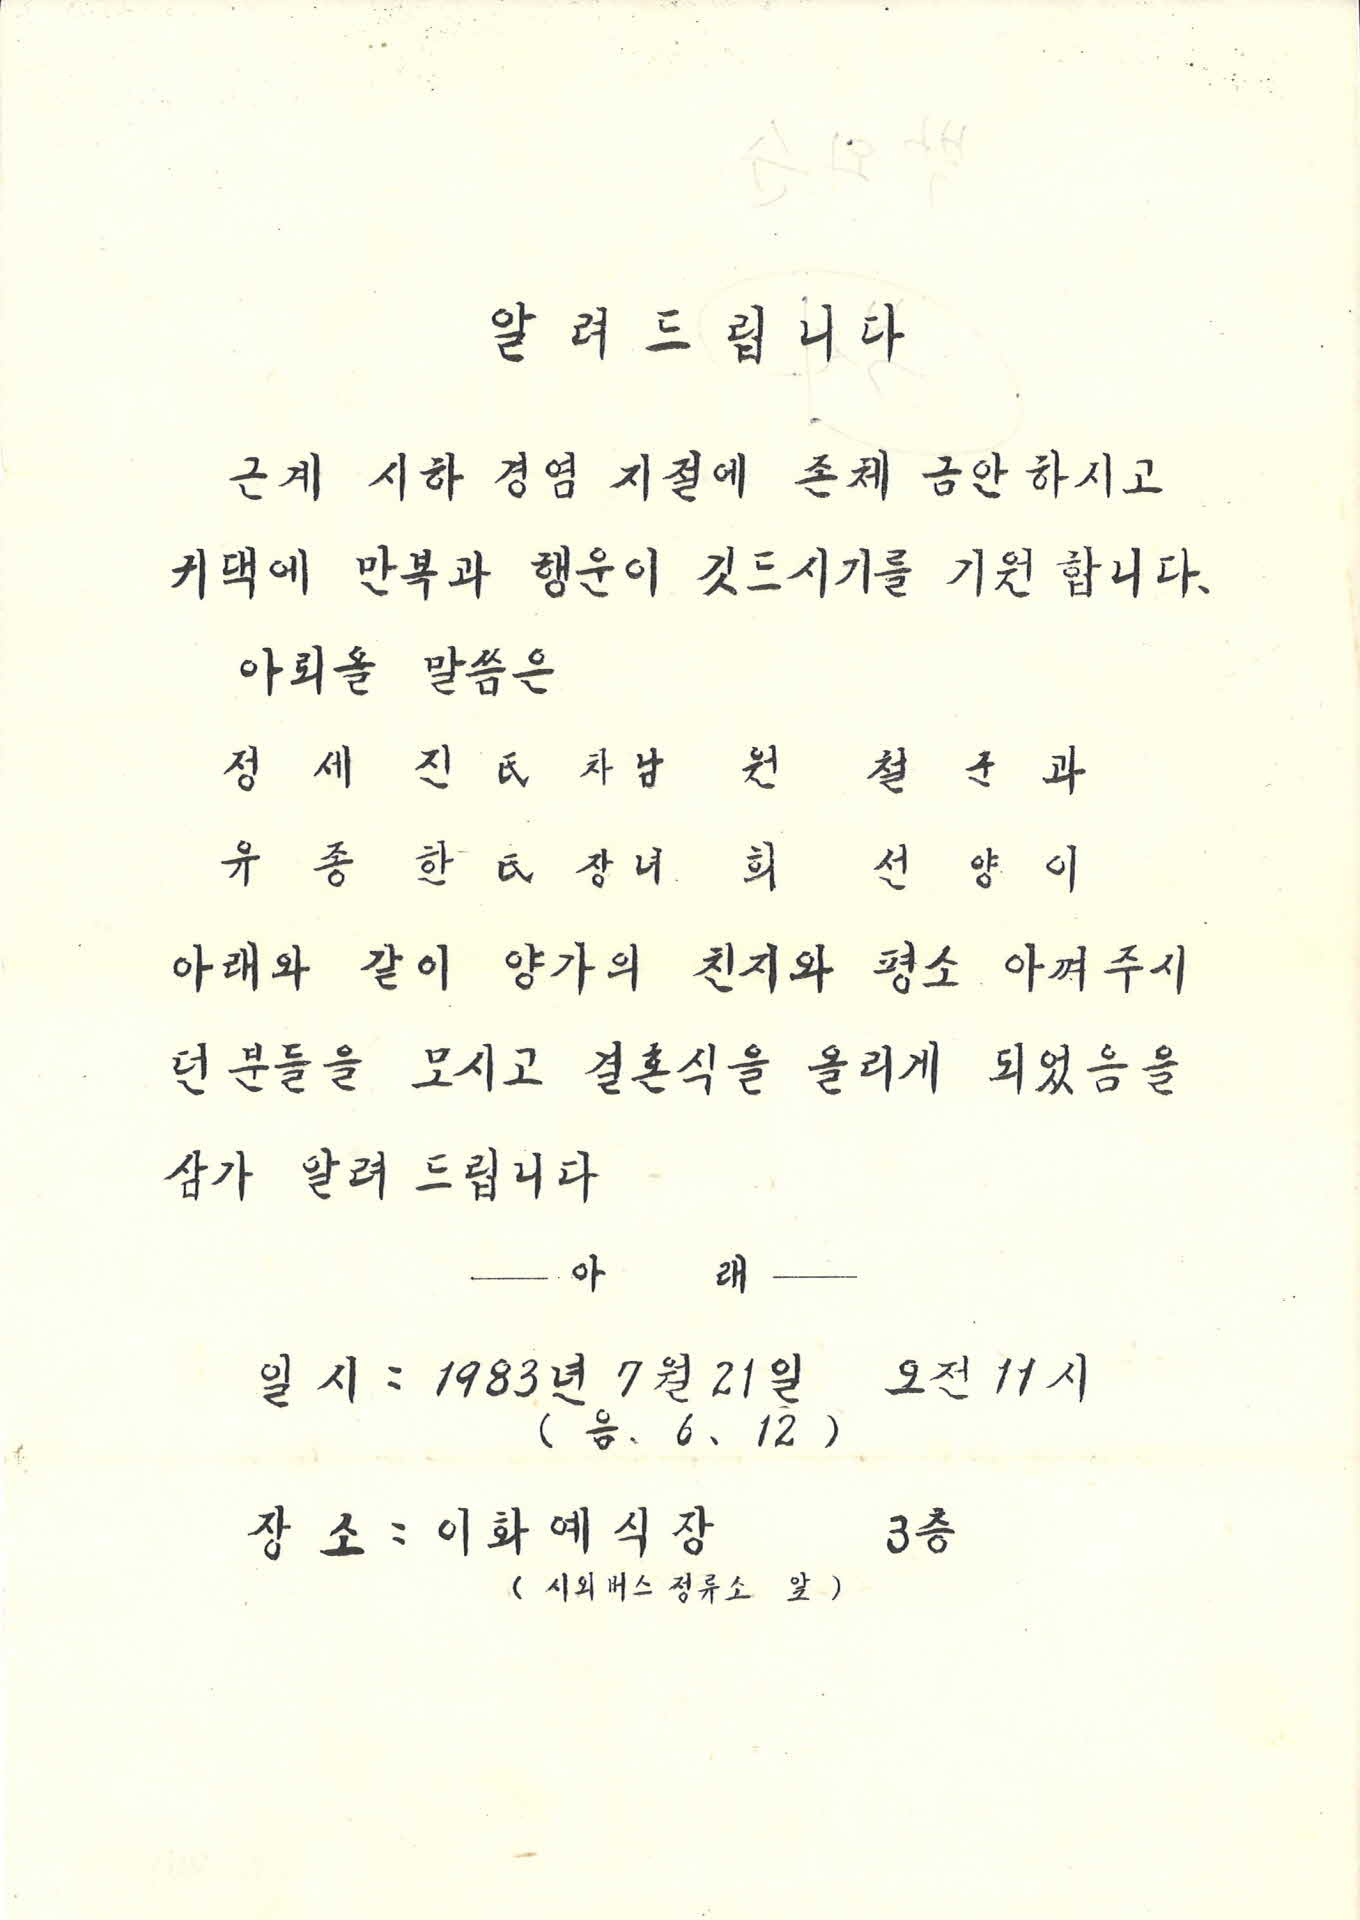 알려드립니다
근계 시하 경염 지절에 존체 금안하시고
귀댁에 만복과 행운이 깃드시기를 기원합니다.
아뢰올 말씀은
정 세 진 氏 차남 원 철 군과
유 종 한 氏 장녀 희 선 양이
아래와 같이 양가의 친지와 평소 아껴주시
던 분들을 모시고 결혼식을 올리게 되었음을
삼가 알려 드립니다
── 아 래 ──
일 시 : 1983년 7월 21일 오전 11시
( 음. 6. 12 )
장 소 : 이화예식장 3층
( 시외버스정류소 앞 )